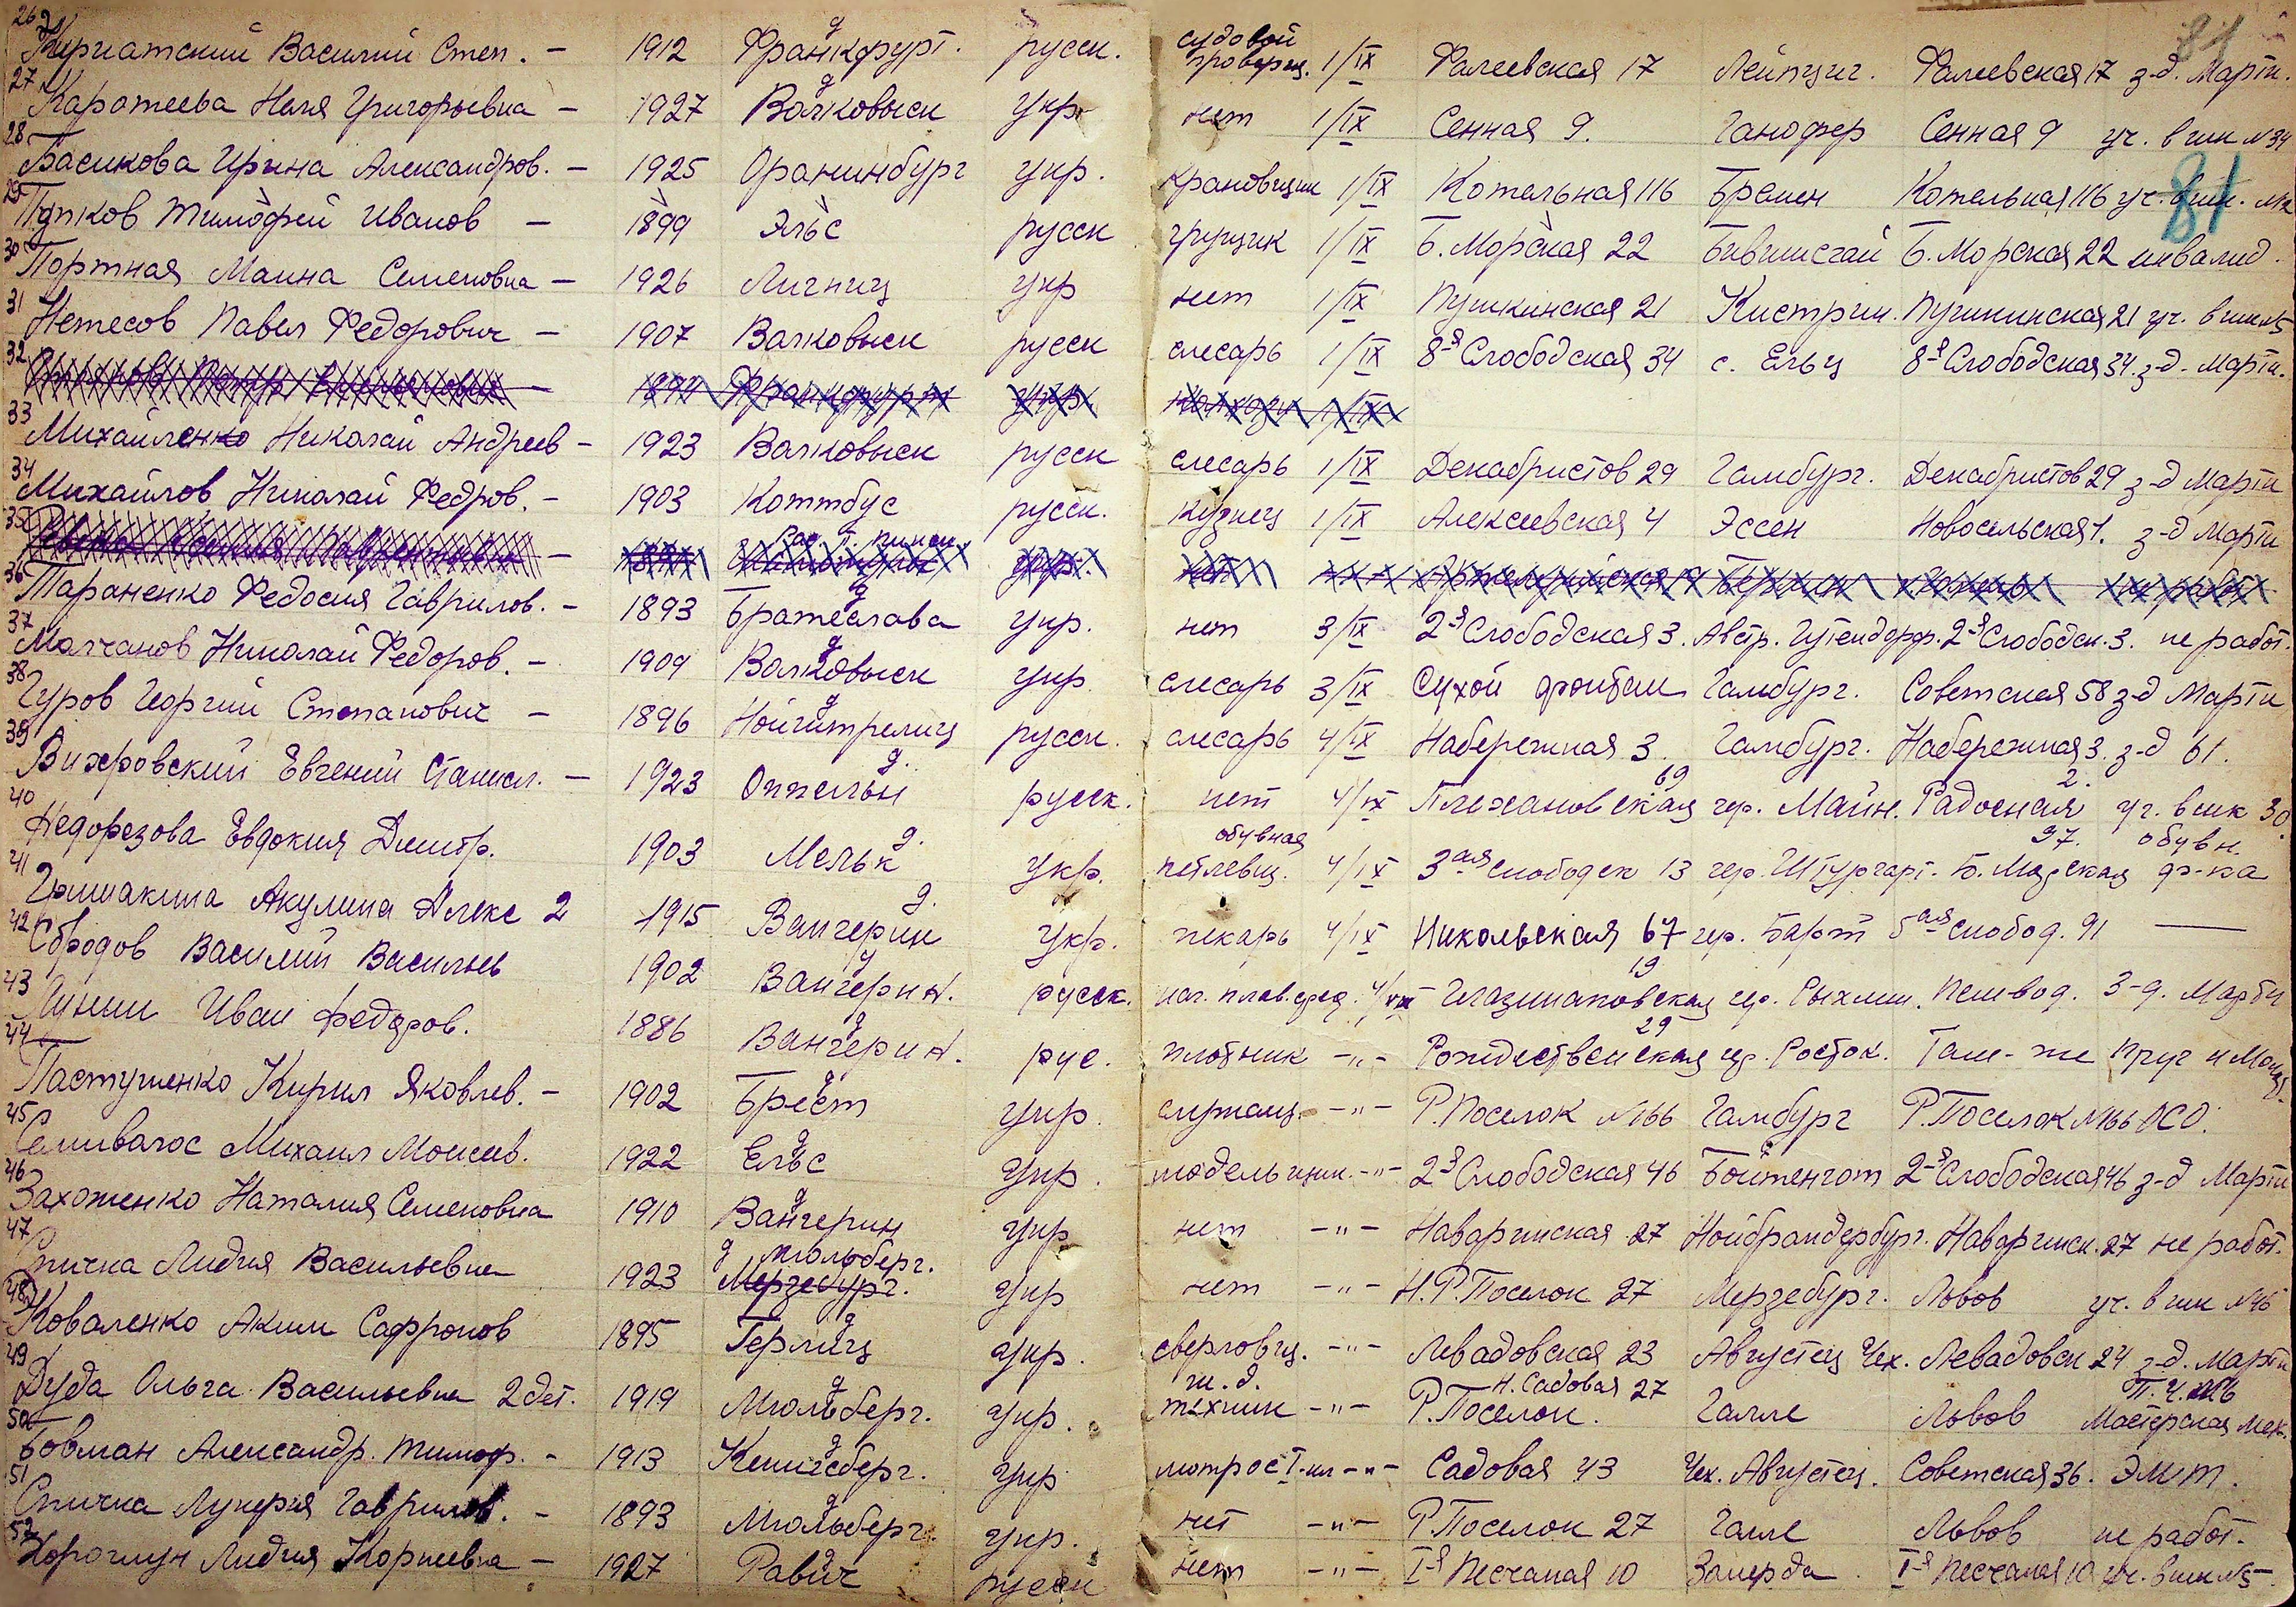 81
26 Василий Степ. — 1912 Франкфурт. русск. судовой проверщ. 1/IX Фалеевская 17 Лейпциг. Фалеевская 17 з-д. Марти.
27 Каратеева Неля Григорьевна — 1927 Валковыск укр. нет 1/IX Сенная 9. Ганофер Сенная 9 уч. в шк №34
28 Басикова Ирина Александров. — 1925 Оранинбург укр. крановщик 1/IX Котельная 116 Бремен Котельная 116 уч. в шк.
81
29 Пупков Тимофей Иванов — 1899 Эльс русск грущик 1/IX Б. Морская 22 Б. Морская 22 инвалид.
30 Портная Маина Семеновна — 1926 Лигниц укр нет 1/IX Пушкинская 21 Кистрин. Пушкинская 21 уч. в шк №5
31 Нетесов Павел Федорович — 1907 Валковыск русск слесарь 1/IX 8-я Слободская 34 с. Ельц 8-я Слободская 34. з-д. Марти.
32
33 Михайленко Николай Андреев — 1923 Валковыск русск слесарь 1/IX Декабристов 29 Гамбург. Декабристов 29 з-д Марти
34 Михайлов Николай Федров. — 1903 Коттбус русск. кузнец 1/IX Алексеевская 4 Эссен Новосельская 1. з-д Марти
35
36 Тараненко Федосия Гаврилов. — 1893 Братеслава укр. нет 3/IX 2-я Слободская 3. Австр. Гутендорф. 2-я Слободск. 3. не работ.
37 Малчанов Николай Федоров. — 1909 Валковыск укр. слесарь 3/IX Сухой фонтан Гамбург. Советская 58 з-д Марти
38 Гуров Георгий Степанович — 1896 Нойштрелиц русск. слесарь 4/IX Набережная 3. Гамбург. Набережная 3. з-д 61.
39 Вихровский Евгений Станисл. — 1923 Оппельн русск. нет 4/IX Плехановская 69 гер. Майн. Радосная 2. уч. в шк 30.
40 Недорезова Евдокия Дмитр. 1903 Мельк укр. обувная петлевщ. 4/IX 3ая слободск 13 гер. Штургарт. Б. Марская 37. обувн. ф-ка
41 Гришакина Акулина Алекс 2 1915 Вангерин укр. пекарь 4/IX Никольская 67 гер. Барт 5ая слобод. 91 —
42 Сбродов Василий Васильев 1902 Вангерин. русск. нач. плав. сред. 19 гер. З-д. Марти
43 Лунин Иван Федоров. 1886 Вангерин. рус. плотник —"— Рождественская 29 гер. Росток. Там-же
44 Пастушенко Кирил Яковлев. — 1902 Брест укр. служащ. —"— Р. Поселок №166 Гамбург Р. Поселок №166 ОСО.
45 Селивачос Михаил Моисеев. 1922 Ельс укр. модельщик. —"— 2-я Слободская 46 2-я Слободская 46 з-д Марти
46 Захоженко Наталия Семеновна 1910 Вангерин укр нет —"— Наваринская 27 Нойбрандербург. Наваринск. 27 не работ.
47 Спичка Лидия Васильевна 1923 Мюльберг. Мерзебург. укр нет —"— Н. Р. Поселок 27 Мерзебург. Львов уч. в шк №46
48 Коваленко Аким Сафронов 1895 Герлиц укр. сверловщ. —"— Левадовская 23 Августец Чех. Левадовск 24 з-д. Марти
49 Дуда Ольга Васильевна 2 дет. 1919 Мюльберг. укр. ж. д. техник —"— Р. Поселок. Н. Садовая 27 Галле Львов Мастерская мех.
50 Бовман Александр. Тимоф. — 1913 Кенигсберг. укр матрос I-кл —"— Садовая 43 Чех. Августец. Советская 36. ЭМТ.
51 Спичка Лукерия Гаврилов. — 1893 Мюльберг. укр. нет —"— Р. Поселок 27 Галле Львов не работ.
52 Лидия Корнеевна — 1927 Равич русск нет —"— I-я Песчаная 10 Загерда I-я Песчаная 10 уч. в шк №5